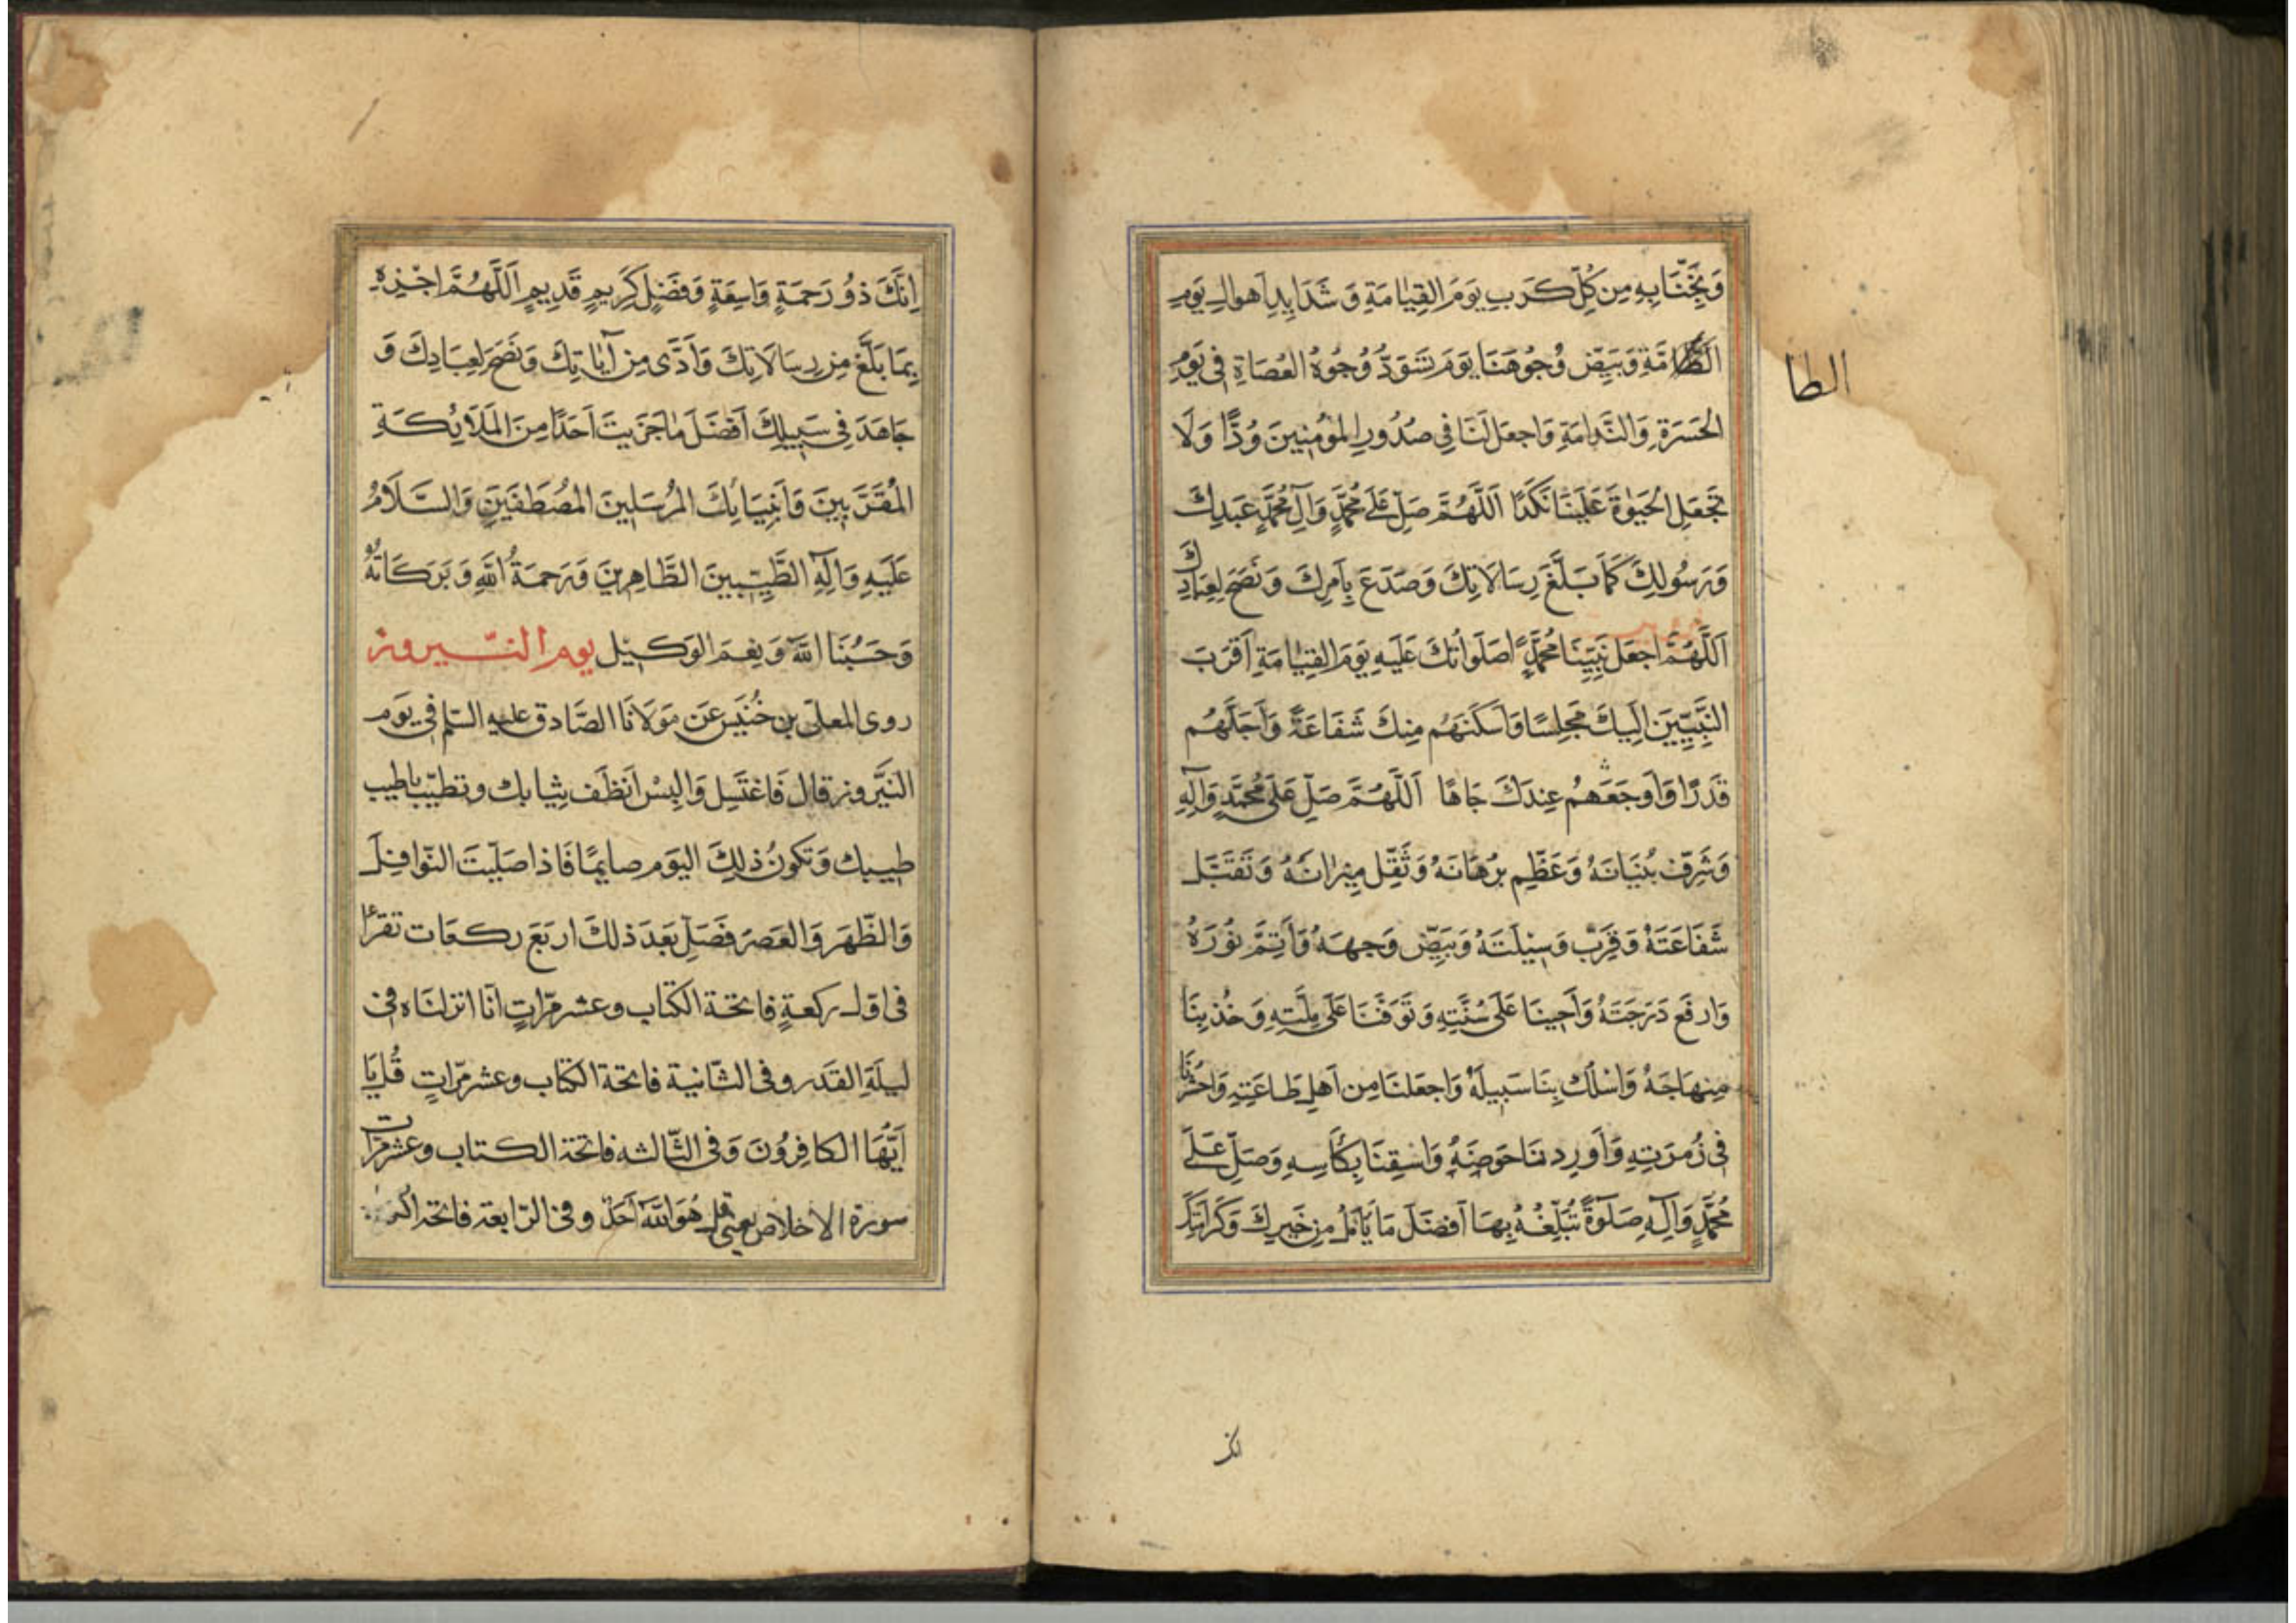 وَنَجِّنَا بِهِ مِن كُلِّ كَرَبٍ يَوْمَ القِيٰامَةِ وَ شَدَايِدِ اَهوالِ يَومِ
الطَّامَّةِ وَبَيِّض وُجُوهَنَا يَوَمَ تَسَوَدُّ وُجُوهُ العُصَاةِ فِى يَوَمِ
الطا
الحَسَرَةِ وَالنَّدامَةِ وَاجعَل لَنَا فِى صُدُورِ المُؤمِنِينَ وُدًّا وَلَا
تَجعَلِ الحَيٰوةَ عَلَيَنَا نَكَدًا اَللَّهُمَّ صَلِّ عَلَى مُحَمَّدٍ وَآلِ مُحَمَّدٍ عَبَدِكَ
وَرَسُولِكَ كَمَا بَلَّغَ رِسَالَاتِكَ وَصَدَعَ بِاَمرِكَ وَنَصَحَ لِعِبَادِكَ
اَللَّهُمَّ اجعَل نَبِيِّنَا مُحَمَّدًا صَلَوَاتُكَ عَلَيهِ يَوَمَ القِيٰامَةِ اَقرَبَ
النَّبِيِّينَ اِلَيكَ مَجلِسًا وَاَسكَنَهُم مِنكَ شَفَاعَةً وَاَجَلَّهُم
قَدَرًا وَاَوجَعَهُم عِندَكَ جَاهًا اَللَّهُمَّ صَلِّ عَلَى مُحَمَّدٍ وَآلِهِ
وَشَرِّف بُنيَانَهُ وَعَظِّم بُرهَانَهُ وَثَقِّل مِيزانَهُ وَتَقَبَّل
شَفَاعَتَهُ وَقَرِّب وَسِيلَتَهُ وَبَيِّض وَجهَهُ وَاَتِمَّ نُورَهُ
وَارفَع دَرَجَتَهُ وَاَحيِنَا عَلَى سُنَّتِهِ وَتَوَفَّنَا عَلَى مِلَّتِهِ وَخُذ بِنَا
مِنهَاجَهُ وَاسْلُك بِنَا سَبِيلَهُ وَاجعَلنَا مِن اَهلِ طَاعَتِهِ وَاحشُرنَا
فِى زُمرَتِهِ وَاَورِدنَا حَوضَهُ وَاسقِنَا بِكَأسِهِ وَصَلِّ عَلَى
مُحَمَّدٍ وَآلِهِ صَلَوةً تُبَلِّغُهُ بِهَا اَفضَلَ مَا يَأمُلُ مِن خَيرِكَ وَكَرَامَتِكَ
اِنَّكَ ذُو رَحمَةٍ وَاسِعَةٍ وَفَضلٍ كَرِيمٍ قَدِيمٍ اَللَّهُمَّ اجْزِهِ
بِمَا بَلَّغَ مِن رِسَالَاتِكَ وَاَدَّى مِن آيَاتِكَ وَنَصَحَ لِعِبَادِكَ وَ
جَاهَدَ فِى سَبِيلِكَ اَفضَلَ مَا جَزَيتَ اَحَدًا مِنَ المَلَائِكَةِ
المُقَرَّبِينَ وَاَنبِيَائِكَ المُرسَلِينَ المُصطَفَينَ وَالسَّلَامُ
عَلَيهِ وَآلِهِ الطَّيِّبِينَ الطَّاهِرِينَ وَرَحمَةُ اللهِ وَبَرَكَاتُهُ
وَحَسبُنَا اللهُ وَنِعمَ الوَكِيل يوم النّيروز
روى المعلّى بن خُنَيس عَن مَولَانَا الصَّادق عليه السّلم فى يَوم
النَّيروز قال فَاغتَسِل وَالبِسْ اَنظَف ثِيابك وتطيّب باطيب
طيبك وَتكونُ ذلِكَ اليَوم صايمًا فَاذا صَلّيتَ النّوافِل
وَالظّهرَ وَالعَصرَ فَصَلِّ بَعدَ ذلكَ اربَعَ ركعَات تقرأ
فى اوّل ركعةٍ فاتحَة الكتاب وعشر مرّاتٍ اِنّا انزلنَاه فى
ليلَةِ القَدر وفى الثّانية فاتحة الكتاب وعشر مرّاتٍ قُل يَا
اَيُّهَا الكافِرُونَ وَفى الثّالثه فاتحة الكتاب وعشر مرّات
سورة الاخلاص يعنى قل هُوَ اللهُ اَحَدٌ وفى الرّابعة فاتحة